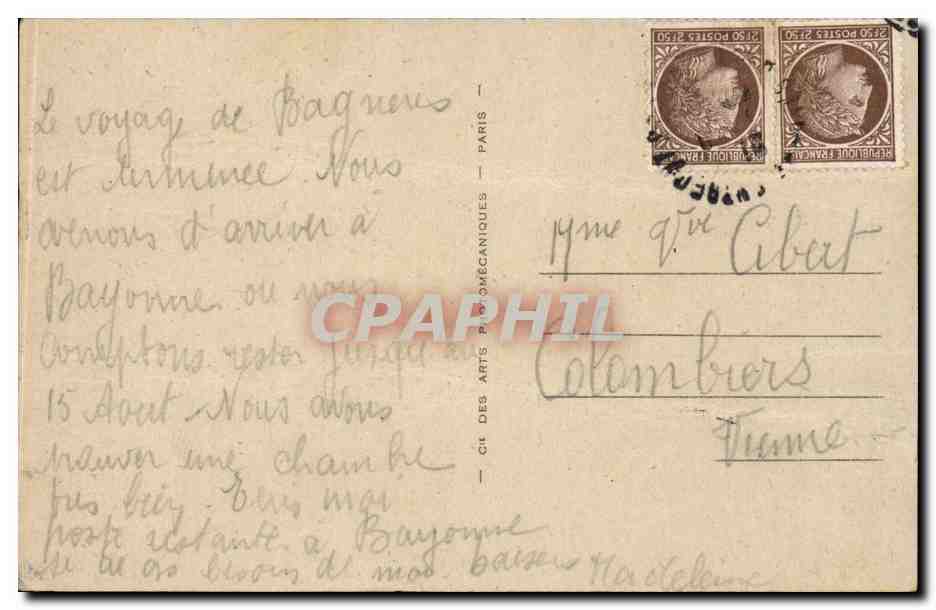 Le voyage de Bagneres
est terminée. Nous
venons d'arriver à
Bayonne ou nous
comptons rester jusqu'au
15 Aout. Nous avons
trouver une chambre
très bien. Ecris moi
poste restante à Bayonne
si tu as besoin de moi baisers
Madeleine
Cie DES ARTS PHOTOMÉCANIQUES — PARIS
2F50 POSTES 2F50
RÉPUBLIQUE FRANÇAISE
2F50 POSTES 2F50
RÉPUBLIQUE FRANÇAISE
Mme Vve Cibert
Colombiers
Vienne
CPAPHIL